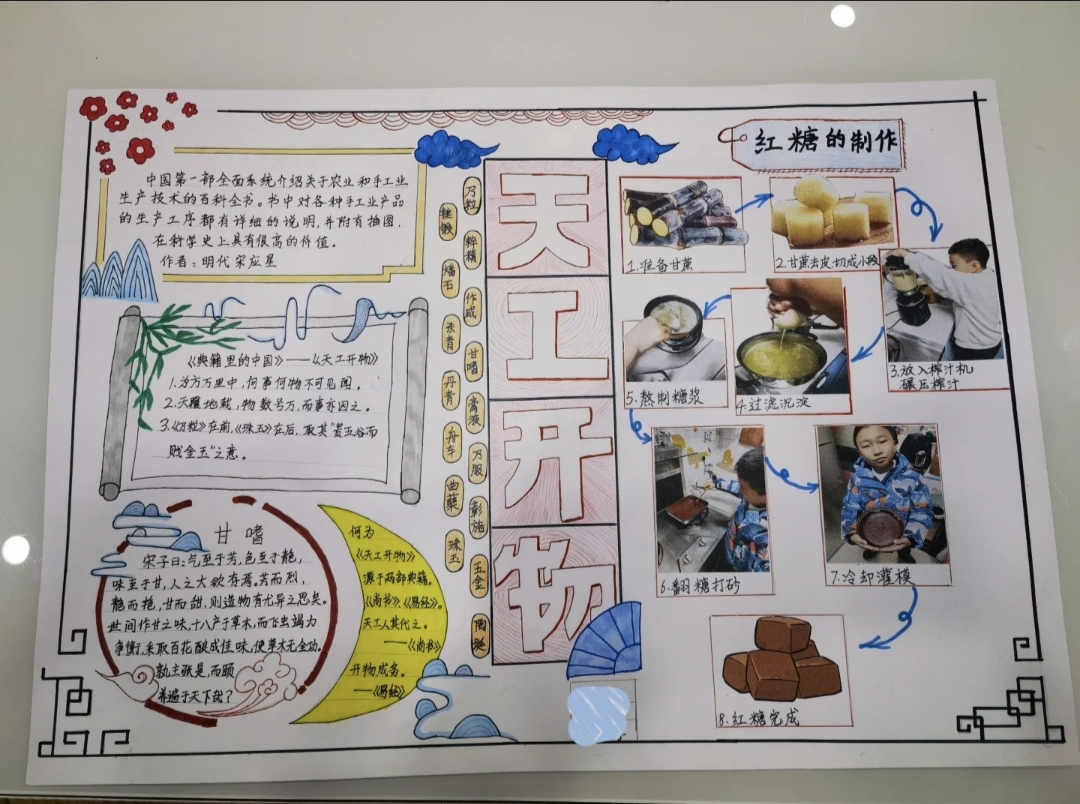 中国第一部全面系统介绍关于农业和手工业
生产技术的百科全书。书中对各种手工业产品
的生产工序都有详细的说明,并附有插图,
在科学史上具有很高的价值。
作者:明代宋应星
《典籍里的中国》——《天工开物》
1.为方万里中,何事何物不可见闻。
2.天覆地载,物数号万,而事亦因之。
3.《乃粒》在前,《珠玉》在后,取其“贵五谷而
贱金玉”之意。
甘嗜
宋子曰:气至于芳,色至于靘,
味至于甘,人之大欲存焉。芳而烈,
靘而艳,甘而甜,则造物有尤异之思矣。
世间作甘之味,十八产于草木,而飞虫竭力
争衡,采取百花酿成佳味,使草木无全功。
孰主张是,而颐
养遍于天下哉?
何为
《天工开物》
源于两部典籍,
《尚书》、《易经》。
天工人其代之。
——《尚书》
开物成务。
——《易经》
乃粒
锤锻
粹精
燔石
作咸
杀青
甘嗜
丹青
膏液
舟车
乃服
曲蘖
彰施
珠玉
五金
陶埏
天工开物
红糖的制作
1.准备甘蔗
2.甘蔗去皮切成小段
3.放入榨汁机
碾压榨汁
4.过滤沉淀
5.熬制糖浆
6.翻糖打砂
7.冷却灌模
8.红糖完成